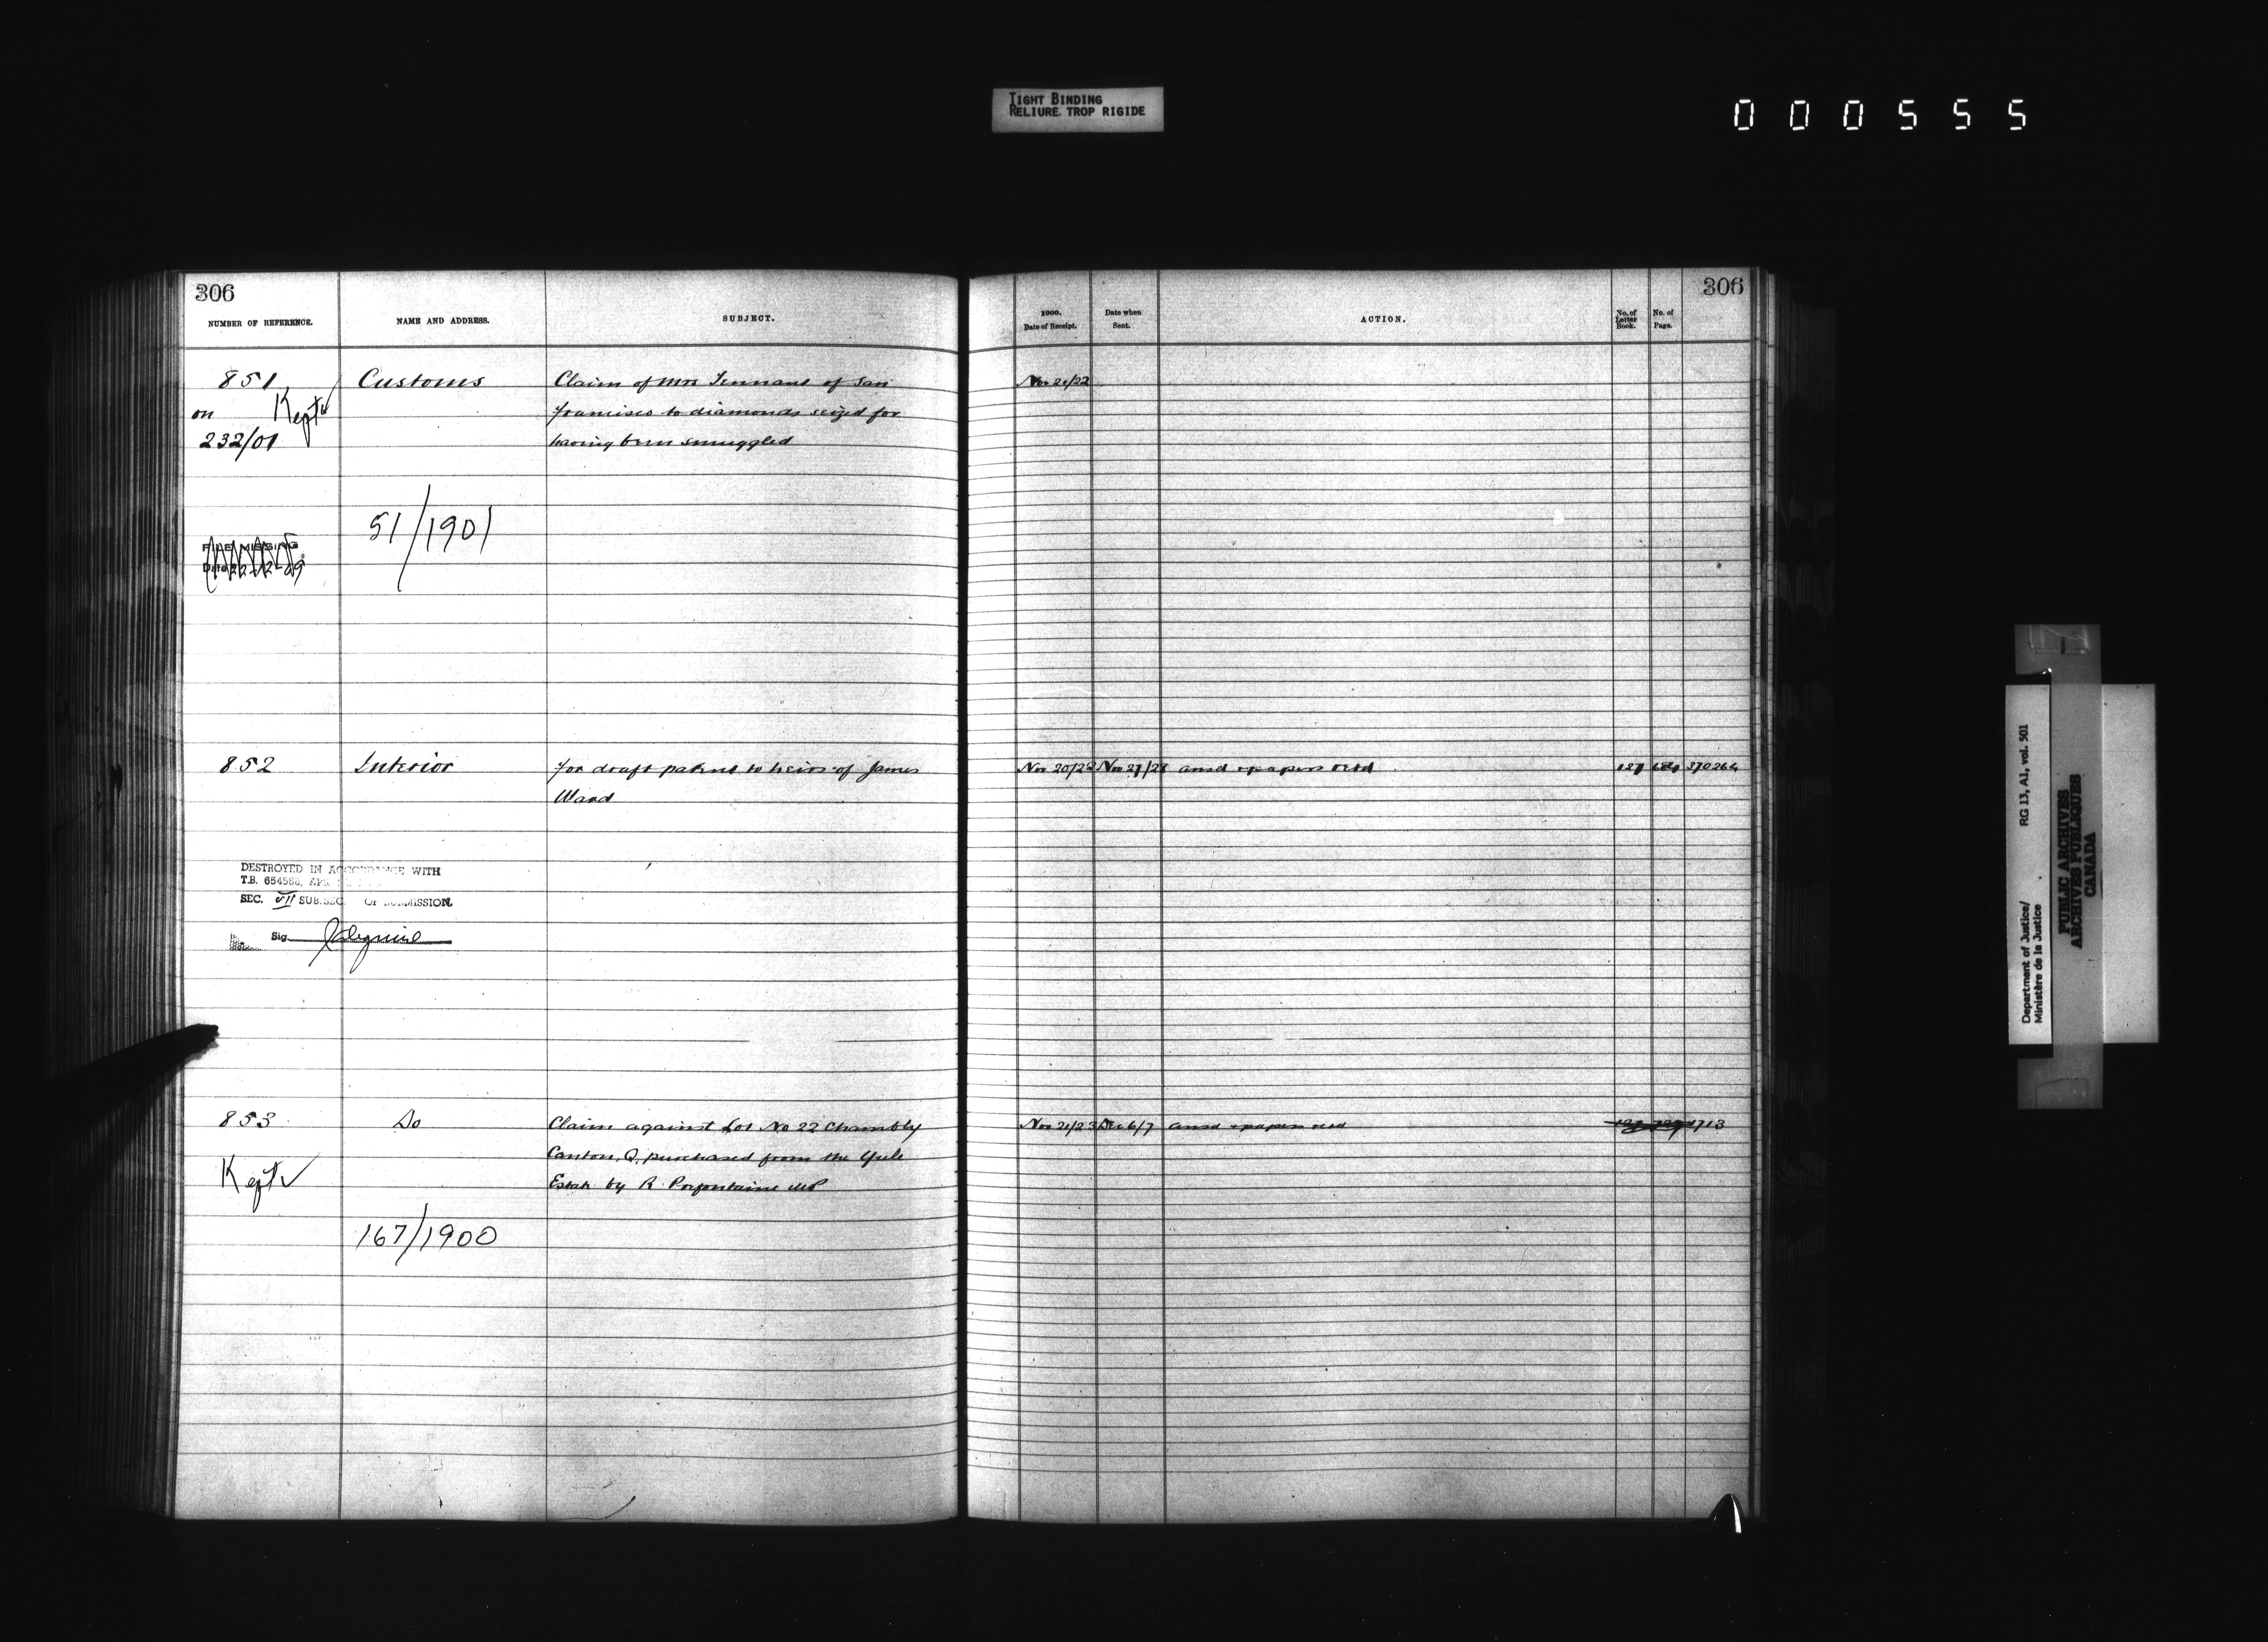 TIGHT BINDING
RELIURE TROP RIGIDE
000555
306
NUMBER OF REFERENCE.
NAME AND ADDRESS.
SUBJECT.
851
Customs
Claim of Mrs Tennant of San
on
Kept
francisco to diamonds seized for
232/01
having been smuggled
51/1901
FILE MISSING
Date
852
Interior
for draft patent to heirs of James
Ward
DESTROYED IN ACCORDANCE WITH
T.B. 654568, APR
SEC. VII SUB. SEC. OF SUBMISSION.
Sig.
853
Do
Claim against Lot No 22 Chambly
Canton, Q, purchased from the Yule
Kept
Estate by R. Prefontaine MP
167/1900
306
1900.
Date of Receipt.
Date when
Sent.
ACTION.
No. of
Letter
Book.
No. of
Page.
Nov 21/22
Nov 20/22 Nov 27/28 ansd & papers retd 127
Nov 21/23 Dec 6/7 ansd & papers retd 1713
Department of Justice/
Ministère de la Justice
RG 13, A1, vol. 501
PUBLIC ARCHIVES
ARCHIVES PUBLIQUES
CANADA